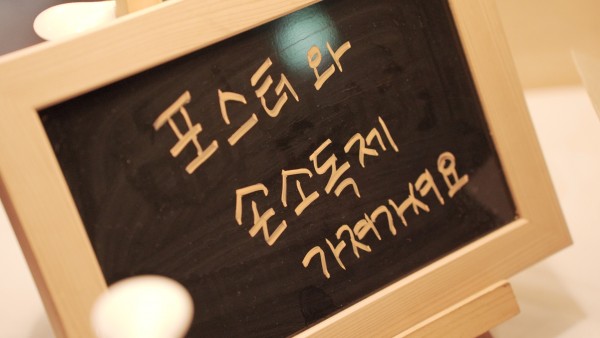 포스터와
손소독제
가져가셔요